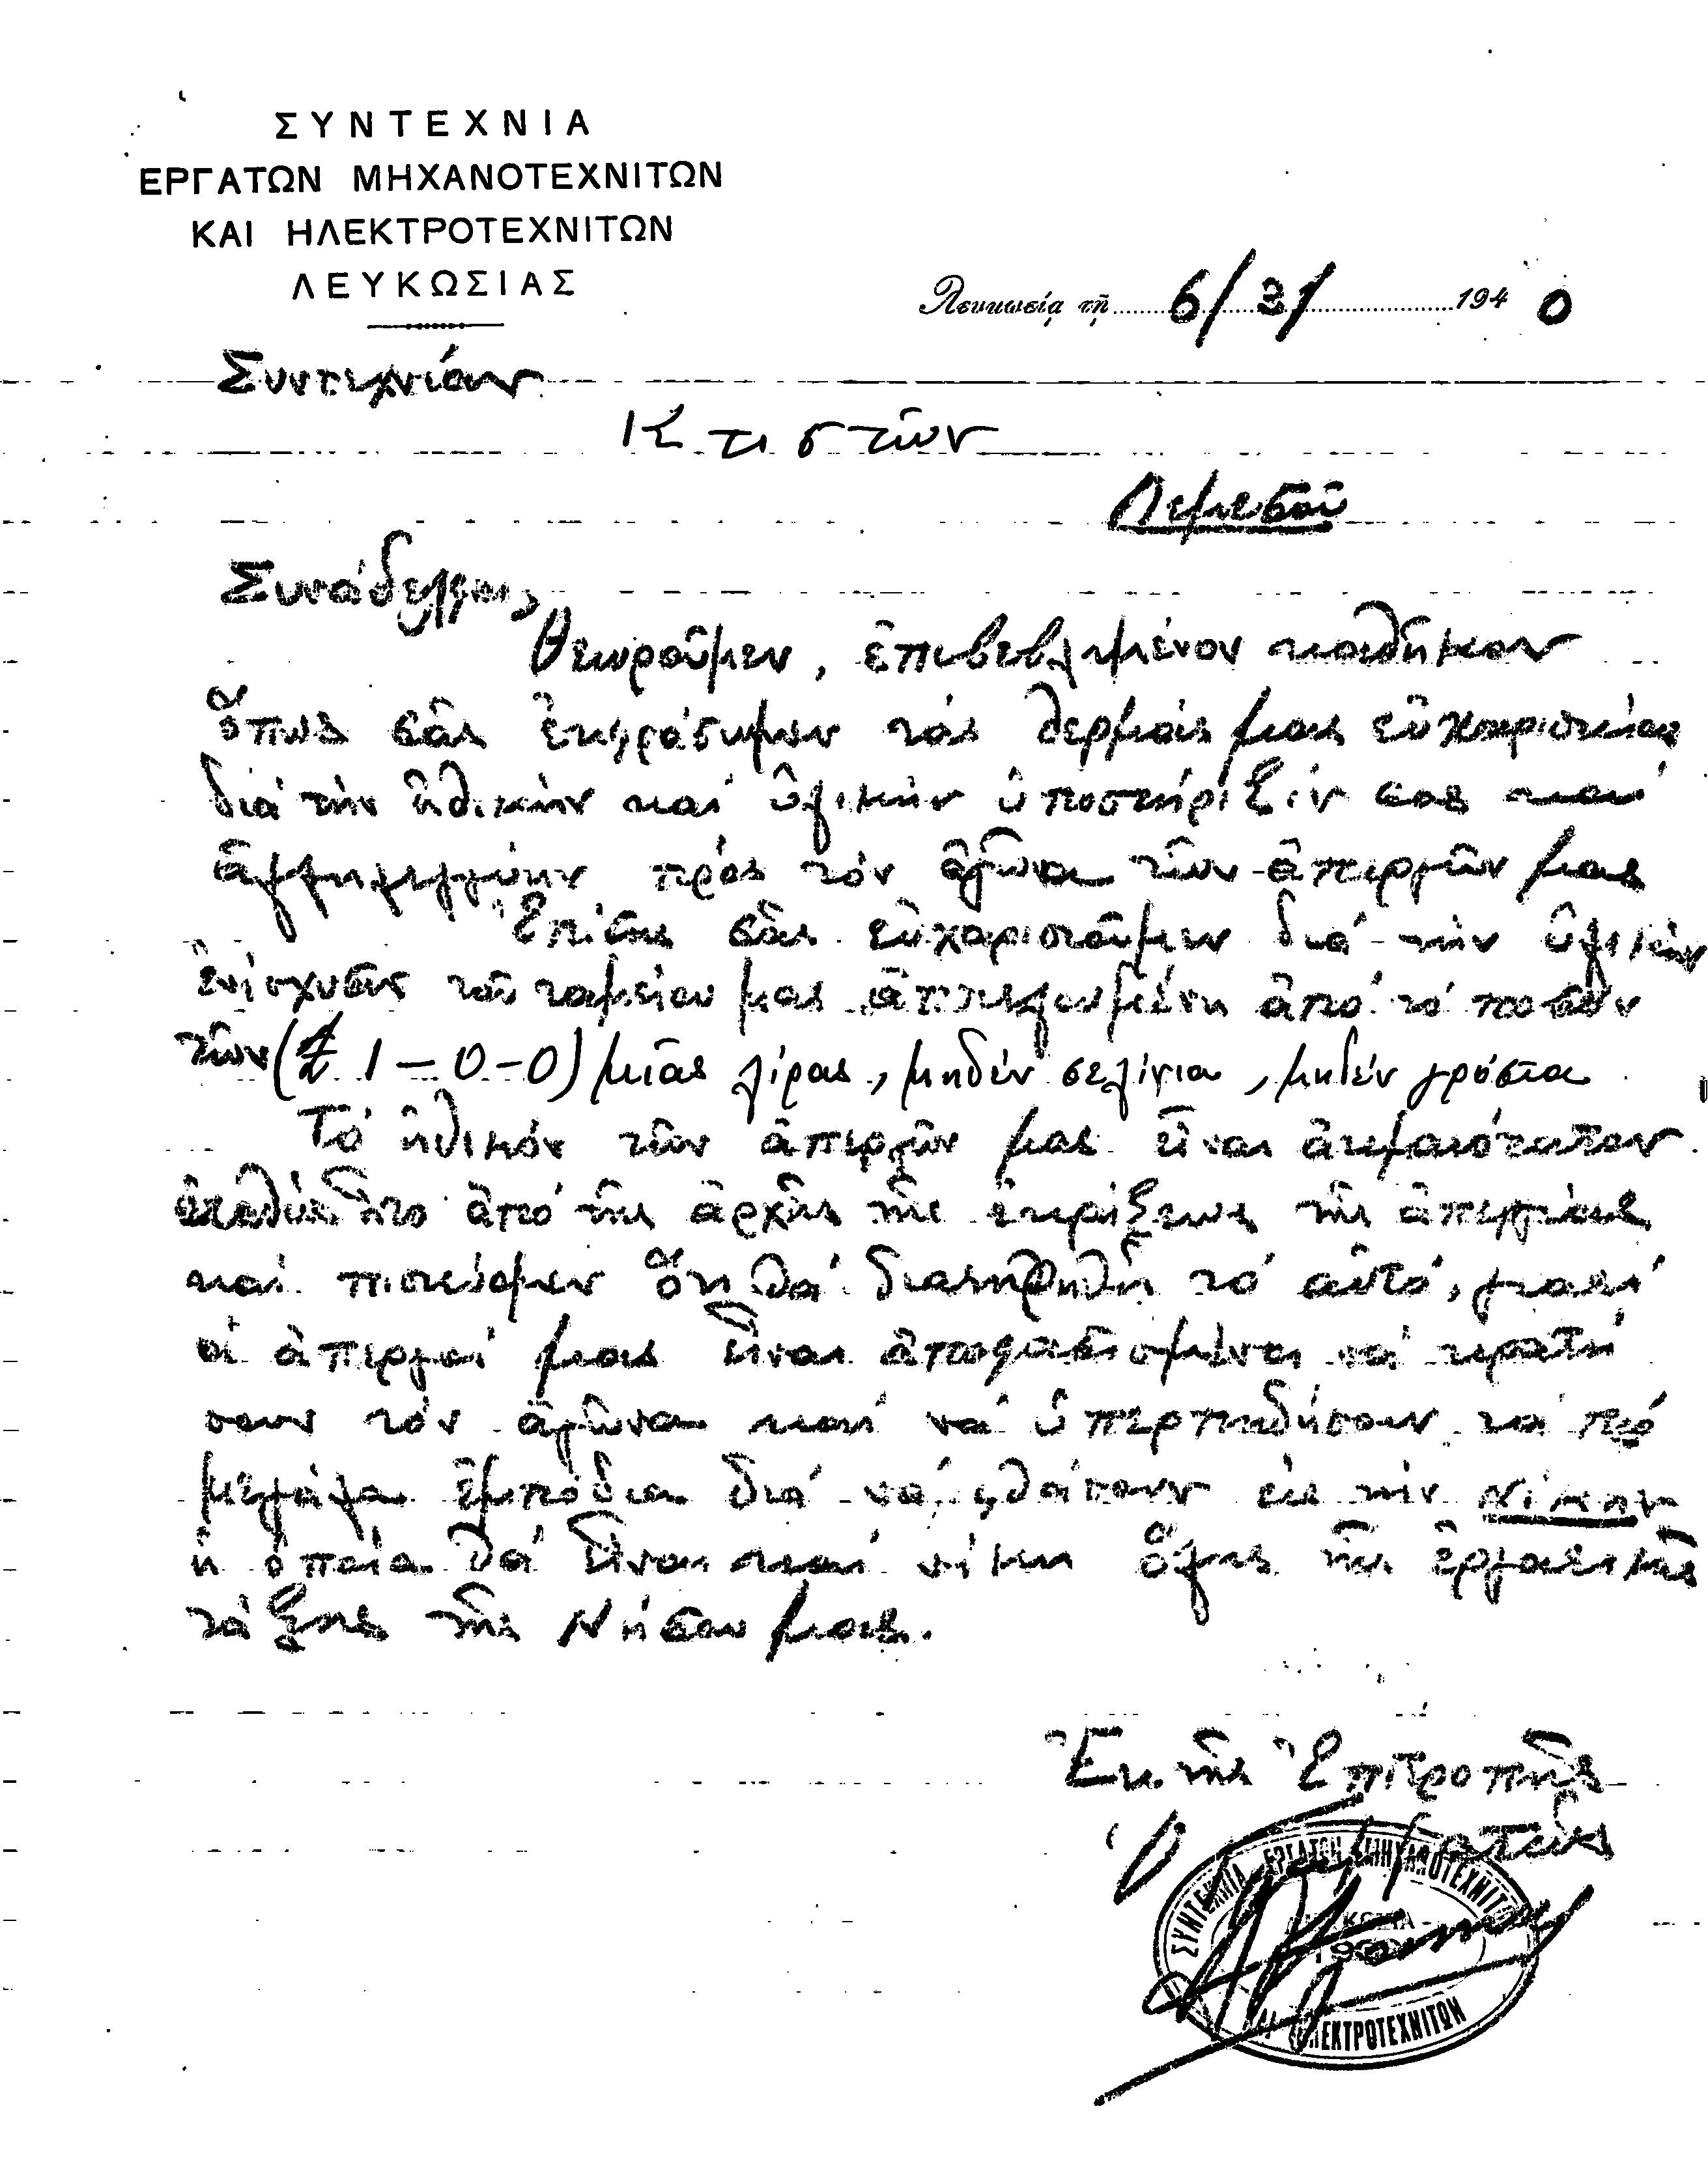 ΣΥΝΤΕΧΝΙΑ
ΕΡΓΑΤΩΝ ΜΗΧΑΝΟΤΕΧΝΙΤΩΝ
ΚΑΙ ΗΛΕΚΤΡΟΤΕΧΝΙΤΩΝ
ΛΕΥΚΩΣΙΑΣ
Λευκωσίᾳ τῇ 6/3/ 1940
Συντεχνίαν
Κτιστῶν
Λεμεσοῦ
Συνάδελφοι,
Θεωροῦμεν, ἐπιβεβλημένον καθῆκον
ὅπως σᾶς ἐκφράσωμεν τάς θερμάς μας εὐχαριστίας
διά τήν ἠθικήν καί ὑλικήν ὑποστήριξίν σας καί
ἀλληλεγγύην πρός τόν ἀγῶνα τῶν ἀπεργῶν μας
Ἐπίσης σᾶς εὐχαριστοῦμεν διά τήν ὑλικήν
ἐνίσχυσις τοῦ ταμείου μας ἀποτελουμένη ἀπό τό ποσόν
τῶν (£ 1-0-0) μιᾶς λίρας, μηδέν σελίνια, μηδέν γρόσια
Τό ἠθικόν τῶν ἀπεργῶν μας εἶναι ἀκμαιότατον
ἀπό τῆς ἀρχῆς τῆς ἐκρήξεως τῆς ἀπεργίας
καί πιστεύομεν ὅτι θά διατηρηθῆ τό αὐτό, γιατί
οἱ ἀπεργοί μας εἶναι ἀποφασισμένοι νά κρατή
σουν τόν ἀγῶνα καί νά ὑπερπηδήσουν τά πιό
μεγάλα ἐμπόδια διά νά φθάσουν εἰς τήν Νίκην
ἡ ὁποία θά εἶναι καί νίκη ὅλης τῆς ἐργατικῆς
τάξης τῆς Νήσου μας.
Ἐκ τῆς Ἐπιτροπῆς
Ὁ Γραμματεύς
ΣΥΝΤΕΧΝΙΑ ΕΡΓΑΤΩΝ ΜΗΧΑΝΟΤΕΧΝΙΤΩΝ
ΗΛΕΚΤΡΟΤΕΧΝΙΤΩΝ